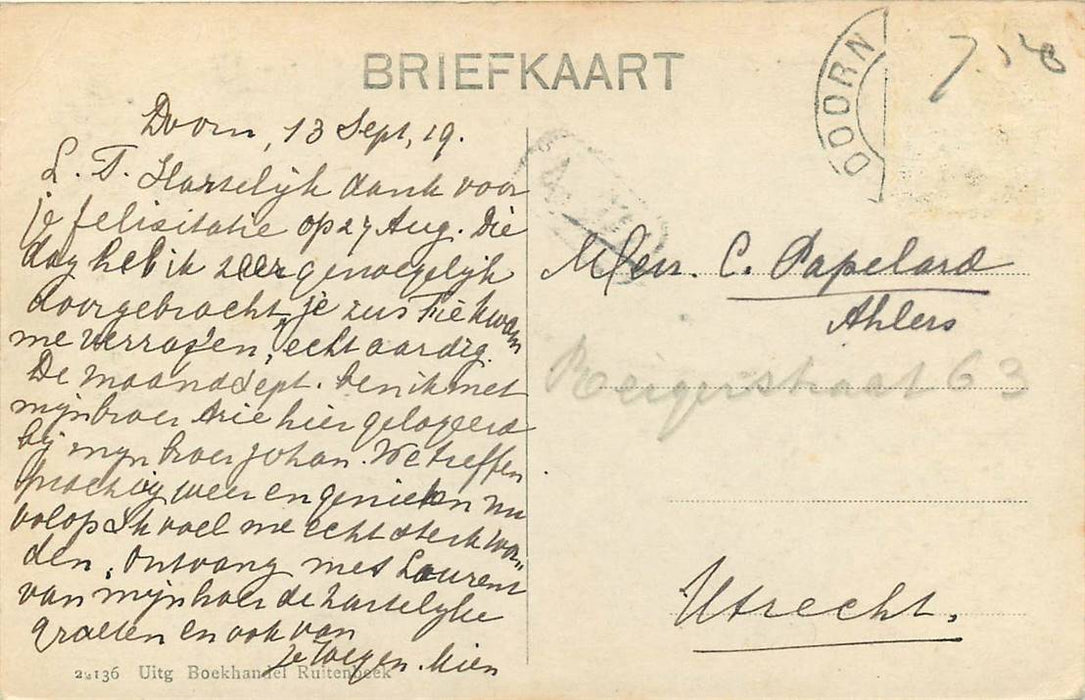 BRIEFKAART
DOORN
7.
Doorn, 13 Sept, 19.
L. T. Hartelijk dank voor
je felisitatie op 27 Aug. Die
dag heb ik zeer genoegelijk
doorgebracht, je zus Fie kwam
me verrassen, echt aardig.
De maand Sept. ben ik met
mijn broer Arie hier gelogeerd
bij mijn broer Johan. We treffen
prachtig weer en genieten nu
volop Ik voel me echt sterk wor„
den, Ontvang met Laurens
van mijn broer de hartelijke
groeten en ook van
je toegen. Mien
Mevr. C. Papelard
Ahlers
Reigerstraat 63
Utrecht.
136 Uitg Boekhandel Ruitenbeek